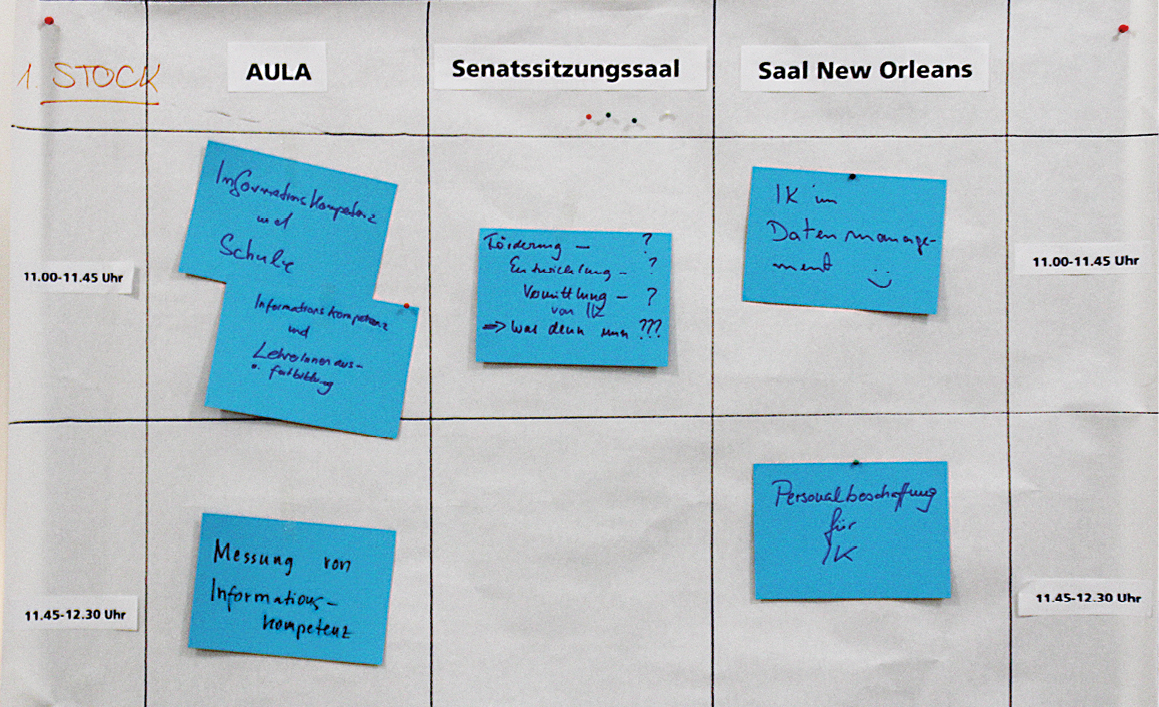 1. STOCK
AULA
Senatssitzungssaal
Saal New Orleans
11.00-11.45 Uhr
Informationskompetenz
und
Schule
Informationskompetenz
und
LehrerInnenaus-
u. fortbildung
Förderung – ?
Entwicklung – ?
Vermittlung – ?
von IK
=> Was denn nun ???
IK im
Datenmanage-
ment :)
11.00-11.45 Uhr
11.45-12.30 Uhr
Messung von
Informations-
kompetenz
Personalbeschaffung
für
IK
11.45-12.30 Uhr